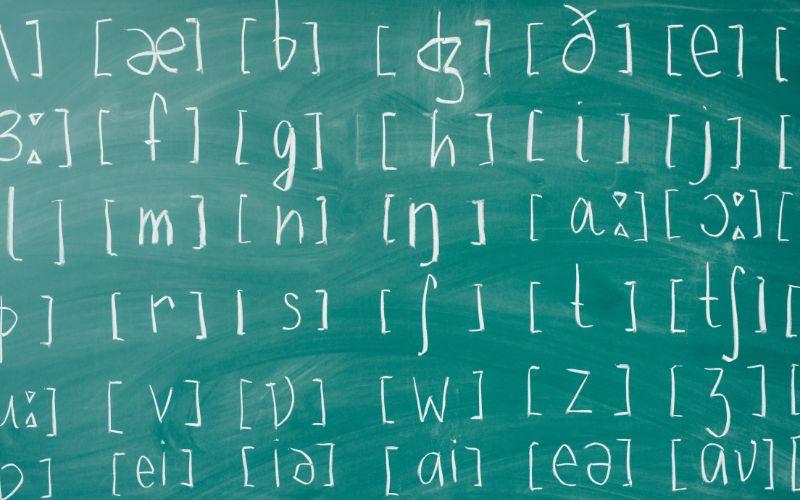 ] [æ] [b] [ʤ] [ð] [e] [
ɜː] [f] [g] [h] [i] [j] [
l] [m] [n] [ŋ] [aː] [ɔː] [
p] [r] [s] [ʃ] [t] [tʃ] [
uː] [v] [ʋ] [w] [z] [ʒ] [
] [ei] [iə] [ai] [eə] [aʋ] [